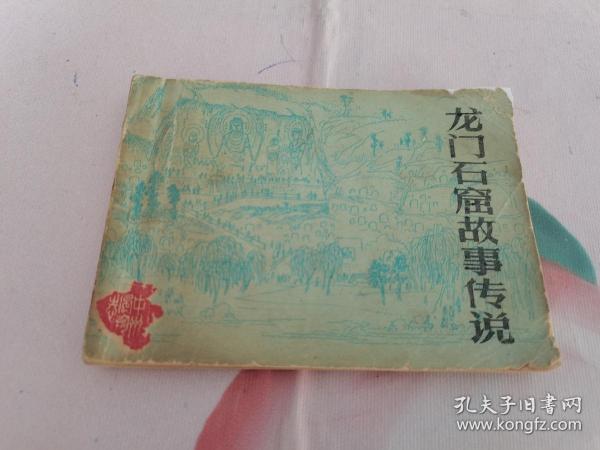 龙门石窟故事传说
孔夫子旧书网
www.kongfz.com